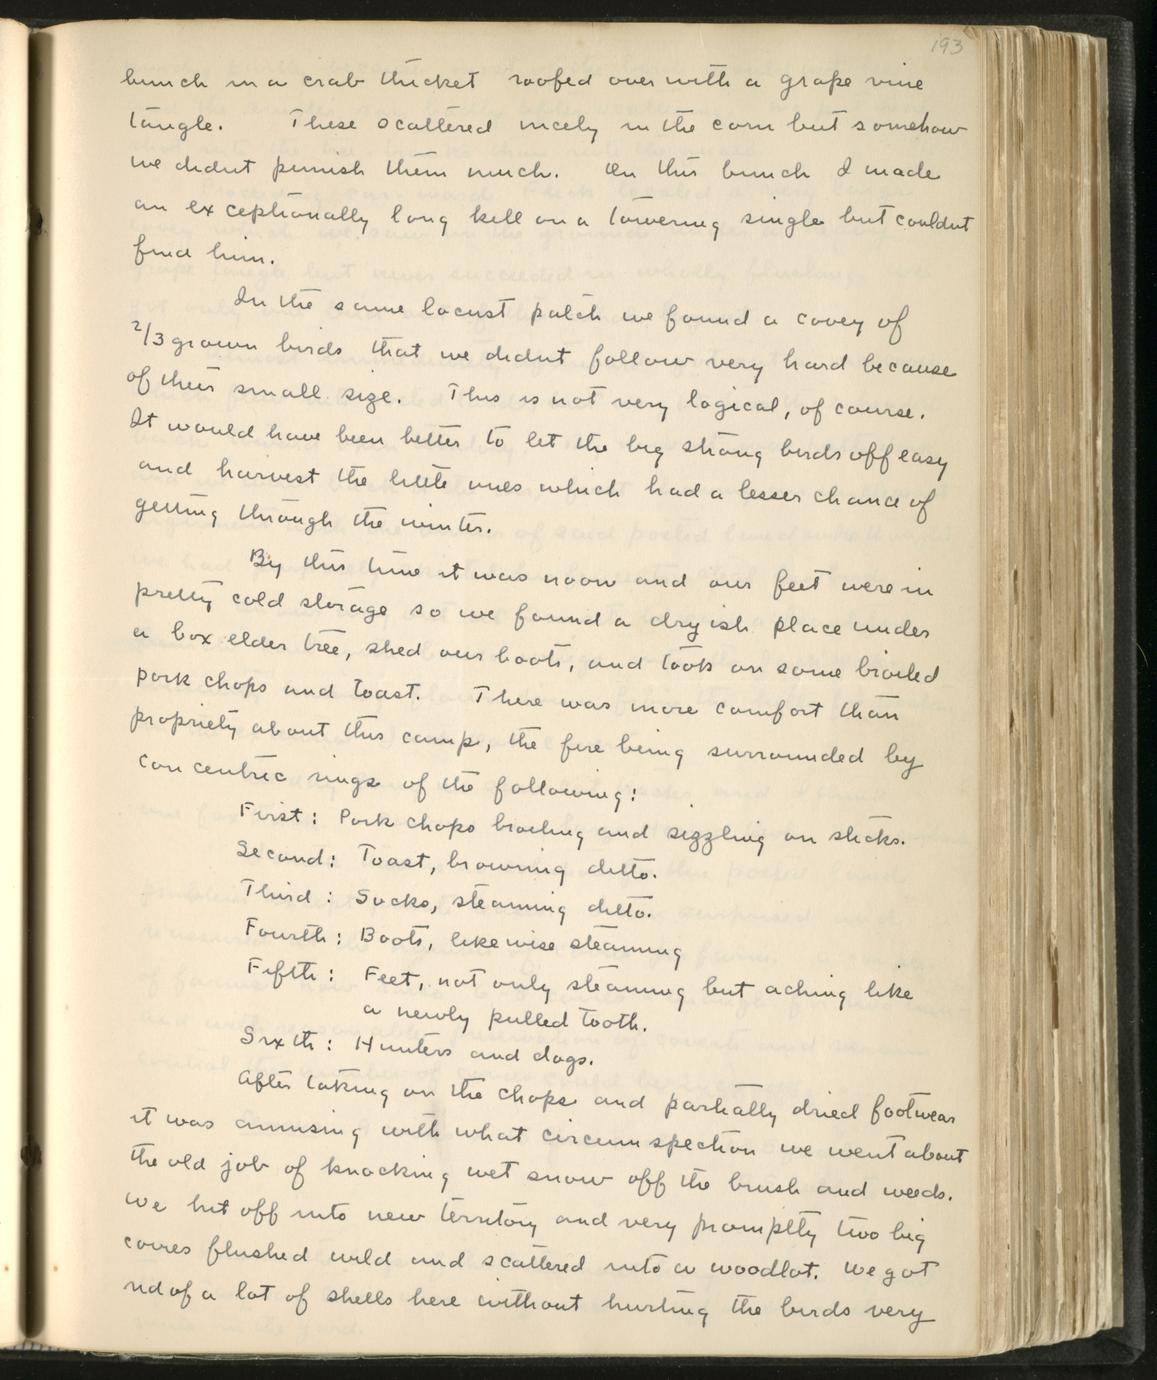 193
bunch in a crab thicket roofed over with a grape vine
tangle. These scattered nicely in the corn but somehow
we didnt punish them much. On this bunch I made
an exceptionally long kill on a towering single but couldnt
find him.
In the same locust patch we found a covey of
2/3 grown birds that we didnt follow very hard because
of their small size. This is not very logical, of course.
It would have been better to let the big strong birds off easy
and harvest the little ones which had a lesser chance of
getting through the winter.
By this time it was noon and our feet were in
pretty cold storage so we found a dryish place under
a box elder tree, shed our boots, and took on some broiled
pork chops and toast. There was more comfort than
propriety about this camp, the fire being surrounded by
concentric rings of the following:
First: Pork chops broiling and sizzling on sticks.
Second: Toast, browning ditto.
Third: Socks, steaming ditto.
Fourth: Boots, likewise steaming
Fifth: Feet, not only steaming but aching like
a newly pulled tooth.
Sixth: Hunters and dogs.
After taking on the chops and partially dried footwear
it was amusing with what circumspection we went about
the old job of knocking wet snow off the brush and weeds.
We hit off into new territory and very promptly two big
covies flushed wild and scattered into a woodlot. We got
rid of a lot of shells here without hurting the birds very